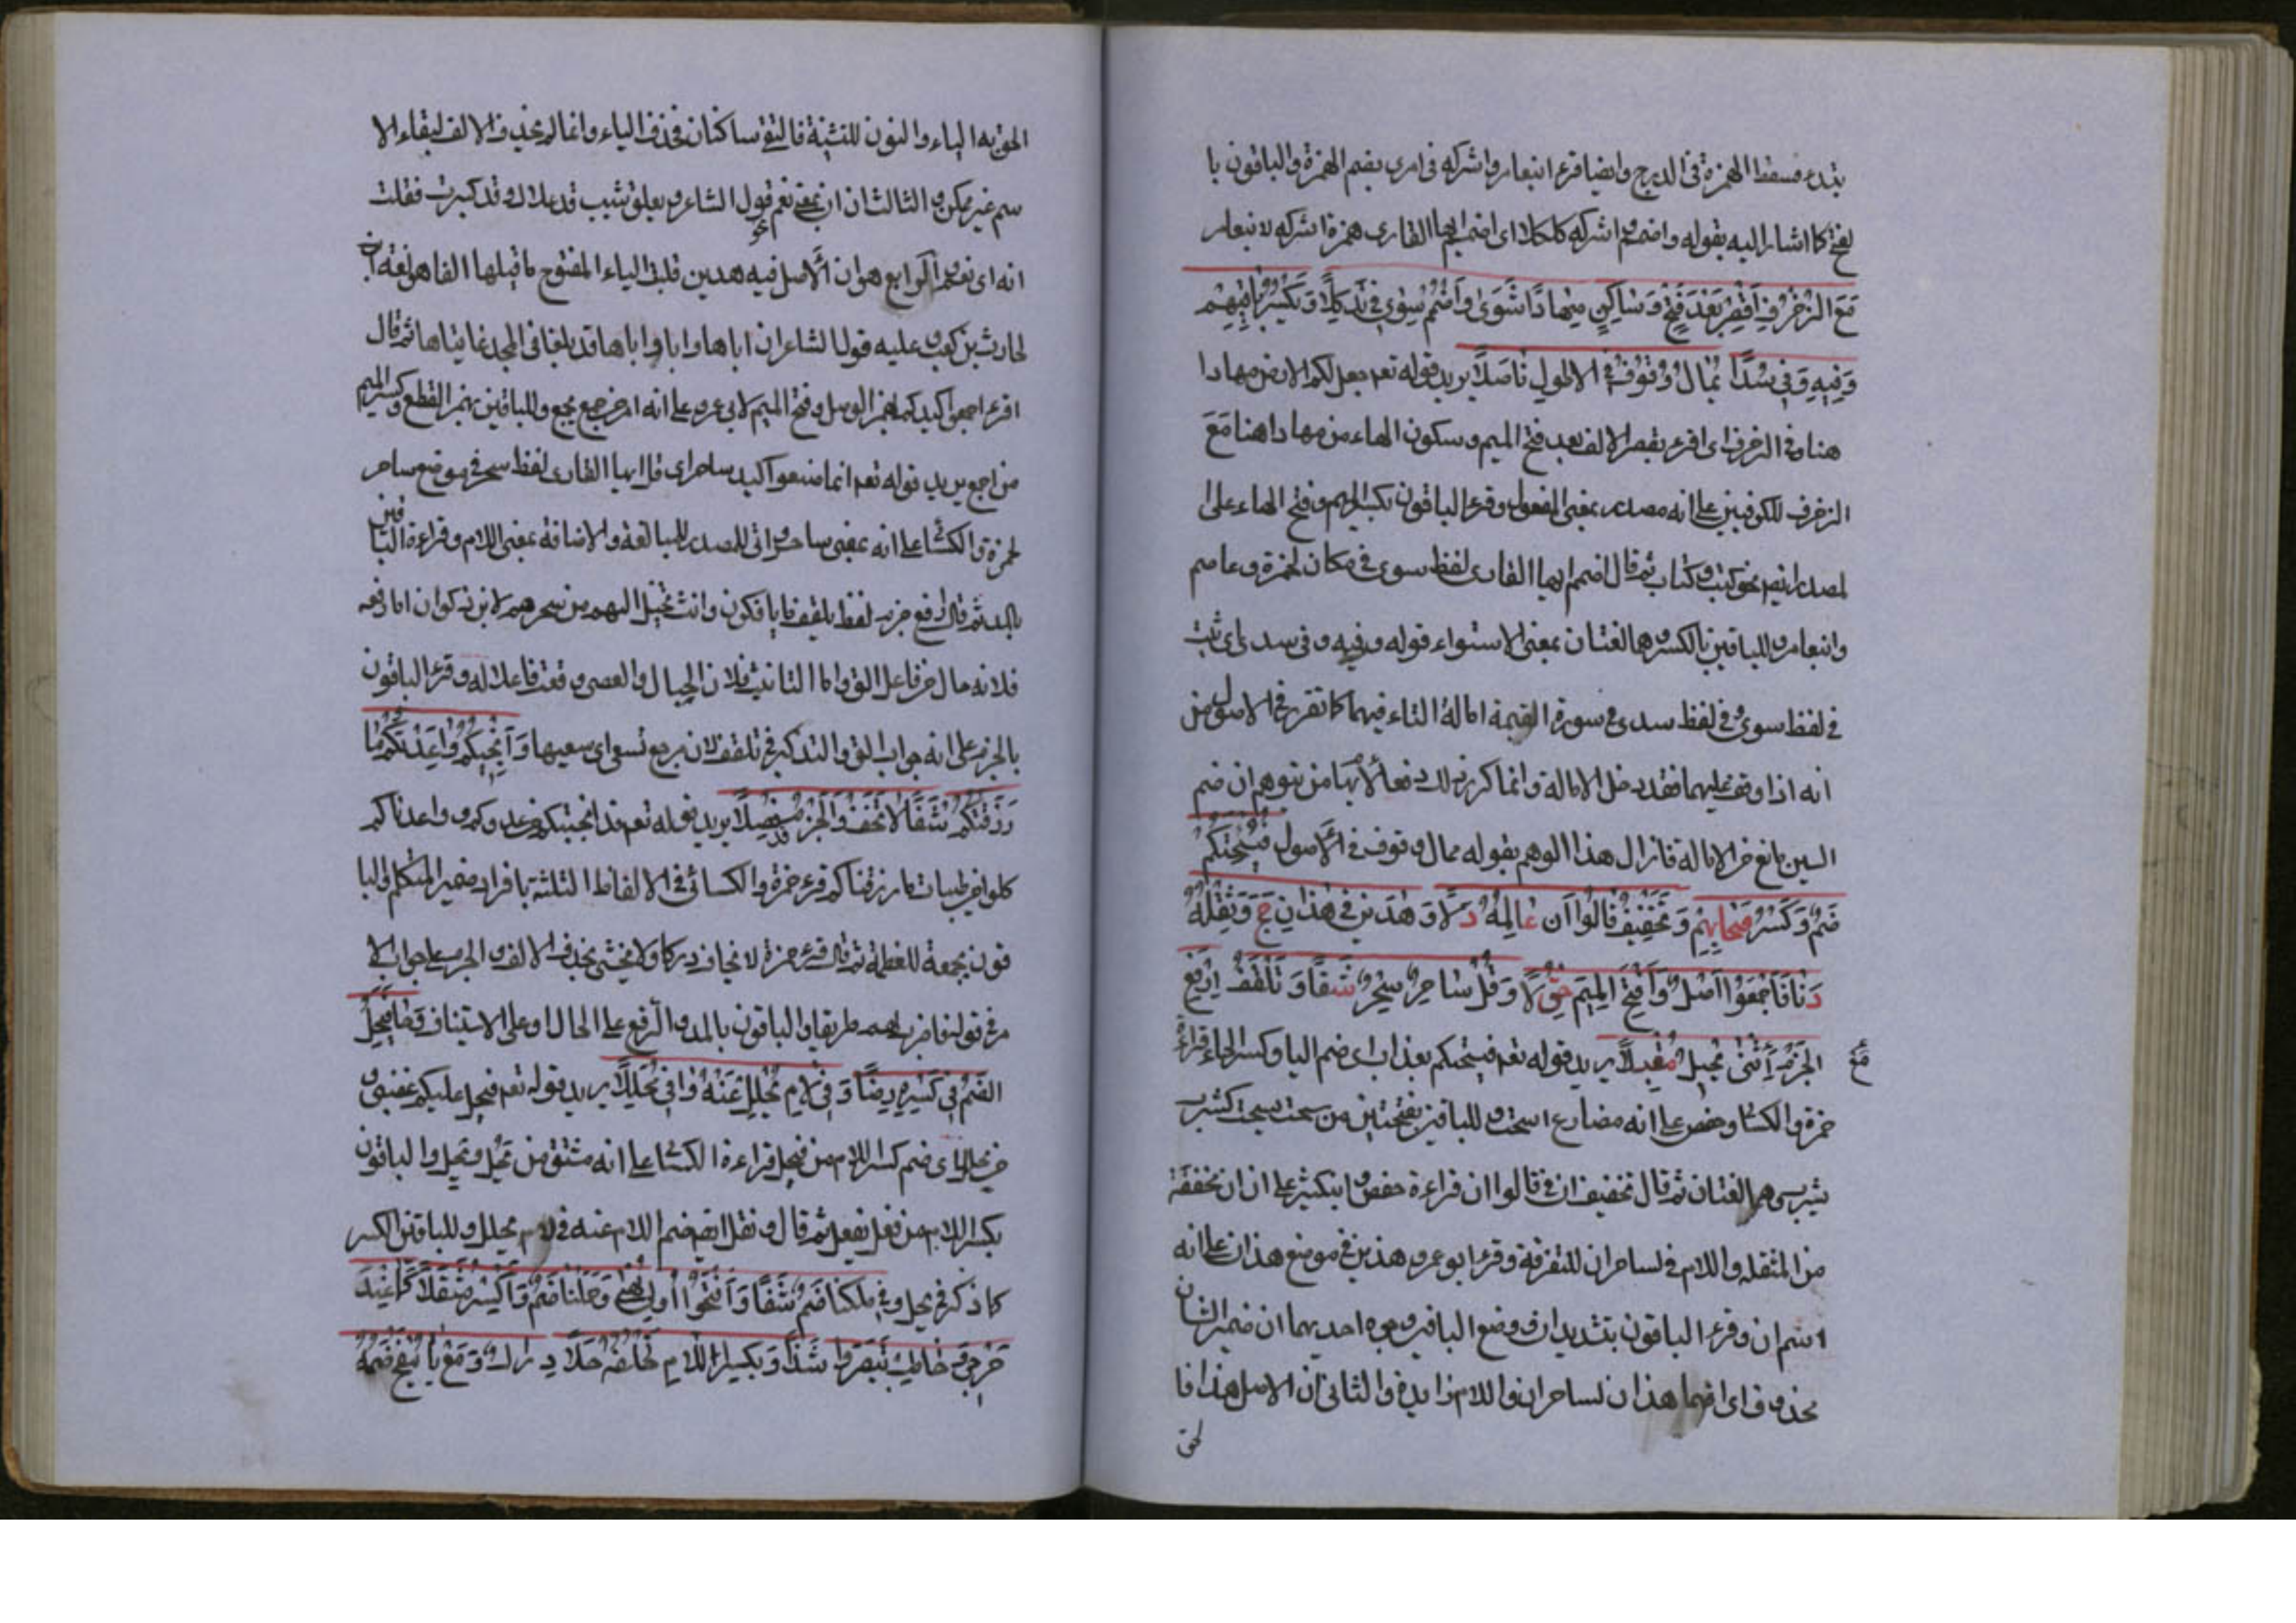 يبتدء فسقط الهمزة في الدرج وايضا قرء ابنعامر واشركه في امرى بضم الهمزة والباقون با
لفتح كما اشار اليه بقوله واضمم اشركه كلكلا اى اضمم ايها القارى همزة اشركه لابنعامر
مَعَ الزُخْرُفِ اقْصُرْ بَعْدَ فَتْحٍ وَسَاكِنٍ مِهَادًا ثَوَى وَاضْمُمْ سِوًى فِي نَدٍ كِلَا وَيَكْسِرُ بَاقِيهِمْ
وَفِيهِ وَفِي سُدًا مُمَالُ وُقُوفٍ فِي الاُصُولِ تَأَصَّلَا يريد قوله تعه جعل لكم الارض مهادا
هنا وفي الزخرف اى اقرء بقصر الالف بعد فتح الميم وسكون الهاء من مهادا هنا مَعَ
الزخرف للكوفيين على انه مصدر بمعنى المفعول وقرء الباقون بكسر الميم وفتح الهاء على ا
لمصدر ايضا نحو كتب وكتاب ثم قال اضمم ايها القارى لفظ سوى في مكان لحمزة وعاصم
وابنعامر وللباقين بالكسر وهما لغتان بمعنى الاستواء قوله وفيه وفي سدى اى ثبت
في لفظ سوى وفي لفظ سدى في سورة القيمة امالة التاء فيهما كما تقرر في الاصول من
انه اذا وقف عليهما فقد دخل الامالة وانما كرر ذلك دفعا لايهام من يتوهم ان ضم
السين مانع من الامالة فازال هذا الوهم بقوله ممال وقوف في الاصول فَيُسْحِتَكُمْ
ضَمٌ وَكَسْرٌ صِحَابُهُمْ وَتَخْفِيفُ قَالُوا اَن عَالِمُهُ دَلَا وَهَذَيْنِ فِي هَذَانِ حَجَّ وَثِقْلُهُ
دَنَا فَاجْمَعُوا اصِلْ وَافْتَحِ الْمِيمَ حَقَّ لَا وَقُلْ سَاحِرٍ سِحْرٌ شَفَا وَتَلَقَّفُ ارْفَعِ
الْجَزْمَ مَعْ اُنْثَى تُخَيَّلُ مُقْبِلَا يريد قوله تعه فيسحتكم بعذاب اى ضم اليا وكسر الحاء قراءة
حمزة والكسا وحفص على انه مضارع اسحت وللباقين بفتحتين من سحت يسحت كشرب
يشرب وهما لغتان ثم قال تخفيف ان في قالوا ان قراءة حفص وابنكثير على ان ان مخففة
من المثقله واللام في لساحران للتفرقة وقرء ابو عمرو هذين في موضع هذان على انه
اسم ان وقرء الباقون بتشديد ان ورفع الباقين وجوه احديها ان ضمير الشان
محذوف اى انهما هذان لساحران واللام زايدة والثانى ان الاصل هذا فا
لحق
الحق به الياء والنون للتثنية فالتقى ساكنان فحذف الياء وانما لم يحذف الالف لبقاء الا
سم غير ممكن والثالث ان ان بمعنى نعم نحو قول الشاعر ويعلق شيب قد علاك وقد كبرت فقلت
انه اى نعم والرابع هو ان الاصل فيه هذين قلبت الياء المفتوح ما قبلها الفا هو لغة ابن
لحارث بن كعب وعليه قول الشاعر ان اباها وابا اباها قد بلغا في المجد غايتاها ثم قال
اقرء اجمعوا كيدكم بهمز الوصل وفتح الميم لابى عمرو على انه امر من جمع يجمع وللباقين بهمز القطع وكسر الميم
من اجمع يريد قوله تعه انما صنعوا كيد ساحر اى قل ايها القارى لفظ سحر في موضع ساحر
لحمزة والكسا على انه بمعنى ساحر واتى للمصدر للمبالغة والاضافة بمعنى اللام وقراءة الباقين
بالمد ثم قال ارفع جزم لفظ تلقف ما يافكون وانث تخيل اليهم من سحرهم لابن ذكوان اما رفعه
فلانه حال من فاعل الق واما التانيث فلان الحبال والعصى وقعت فاعلا له وقرء الباقون
بالجزم على انه جواب الق والتذكير في تلقف لان مرجع تسعى اى سعيها وَاَنْجَيْتُكُمْ وَاعَدْتُكُمْ مَا
رَزَقْتُكُمْ شَفَا لَا تَخَفْ وَالْجَزْمُ فُصِّلَا يريد بقوله تعه قد انجيتكم من عدوكم وواعدناكم
كلوا من طيبات ما رزقناكم قرء حمزة والكسائى في الالفاظ الثلثة بافراد ضمير المتكلم والبا
قون بجمعه للعظمة ثم قال قرء حمزة لا تخاف دركا ولا تخشى بحذف الالف والجزم على جواب الا
مر في قوله فاضرب لهم طريقا والباقون بالمد والرفع على الحال او على الاستيناف وَحَا فَيَحِلُّ
الضَّمُ فِي كَسْرِهِ رِضًا وَفِي لَامِ يَحْلِلْ عَنْهُ وَافَى مُحَلَّلَا يريد قوله تعه فيحل عليكم غضبى و
من يحلل اى ضم كسر اللام من فيحل قراءة الكسا على انه مشتق من حل يحل والباقون
بكسر اللام من فعل يفعل ثم قال ونقل ايضا ضم اللام عنه في لام يحلل وللباقين الكسر
كما ذكر في يحل وَفِي مُلْكِنَا ضَمٌ شَفَا وَافْتَحُوا اُولِى نُهًى وَحَمَلْنَا ضُمَّ وَاكْسِرْ مُثَقِّلًا كَمَا عِنْدَ
حِرْمِيٍّ وَخَاطَبَ تَبْصُرُوا شَذًا وَبِكَسْرِ اللَّامِ تُخْلِفَهُ حَلَا دَرَاكِ وَمَعْ يَا نَنْفُخُ ضَمُّهُ